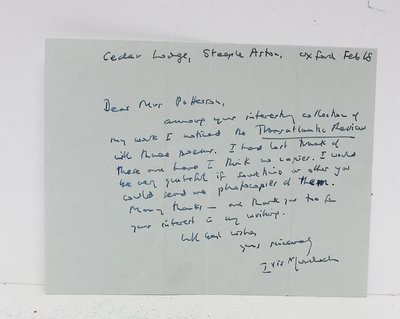 Cedar Lodge, Steeple Aston, Oxford Feb 68
Dear Mrs Patterson,
among your interesting collection of
my work I noticed the Transatlantic Review
with three poems. I had lost track of
these and have I think no copies. I would
be very grateful if sometime or other you
could send me photocopies of them.
Many thanks – and thank you too for
your interest in my writing.
With best wishes
yours sincerely
Iris Murdoch